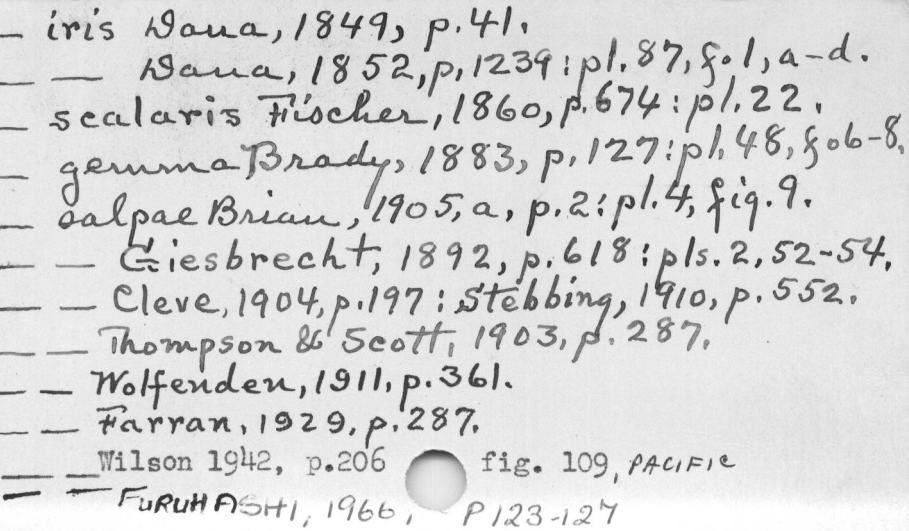 — iris Dana, 1849, p.41.
— — Dana, 1852, p, 1239 : pl. 87, f.1, a-d.
— scalaris Fischer, 1860, p.674 : pl. 22.
— gemma Brady, 1883, p, 127 : pl, 48, fo6-8,
— salpae Brian, 1905, a, p.2 : pl.4, fig. 9.
— — Giesbrecht, 1892, p.618 : pls. 2, 52-54.
— — Cleve, 1904, p.197 : Stebbing, 1910, p. 552.
— — Thompson & Scott, 1903, p. 287.
— — Wolfenden, 1911, p. 361.
— — Farran, 1929, p. 287.
— — Wilson 1942, p.206 fig. 109, PACIFIC
— — FURUHASHI, 1966, P 123-127